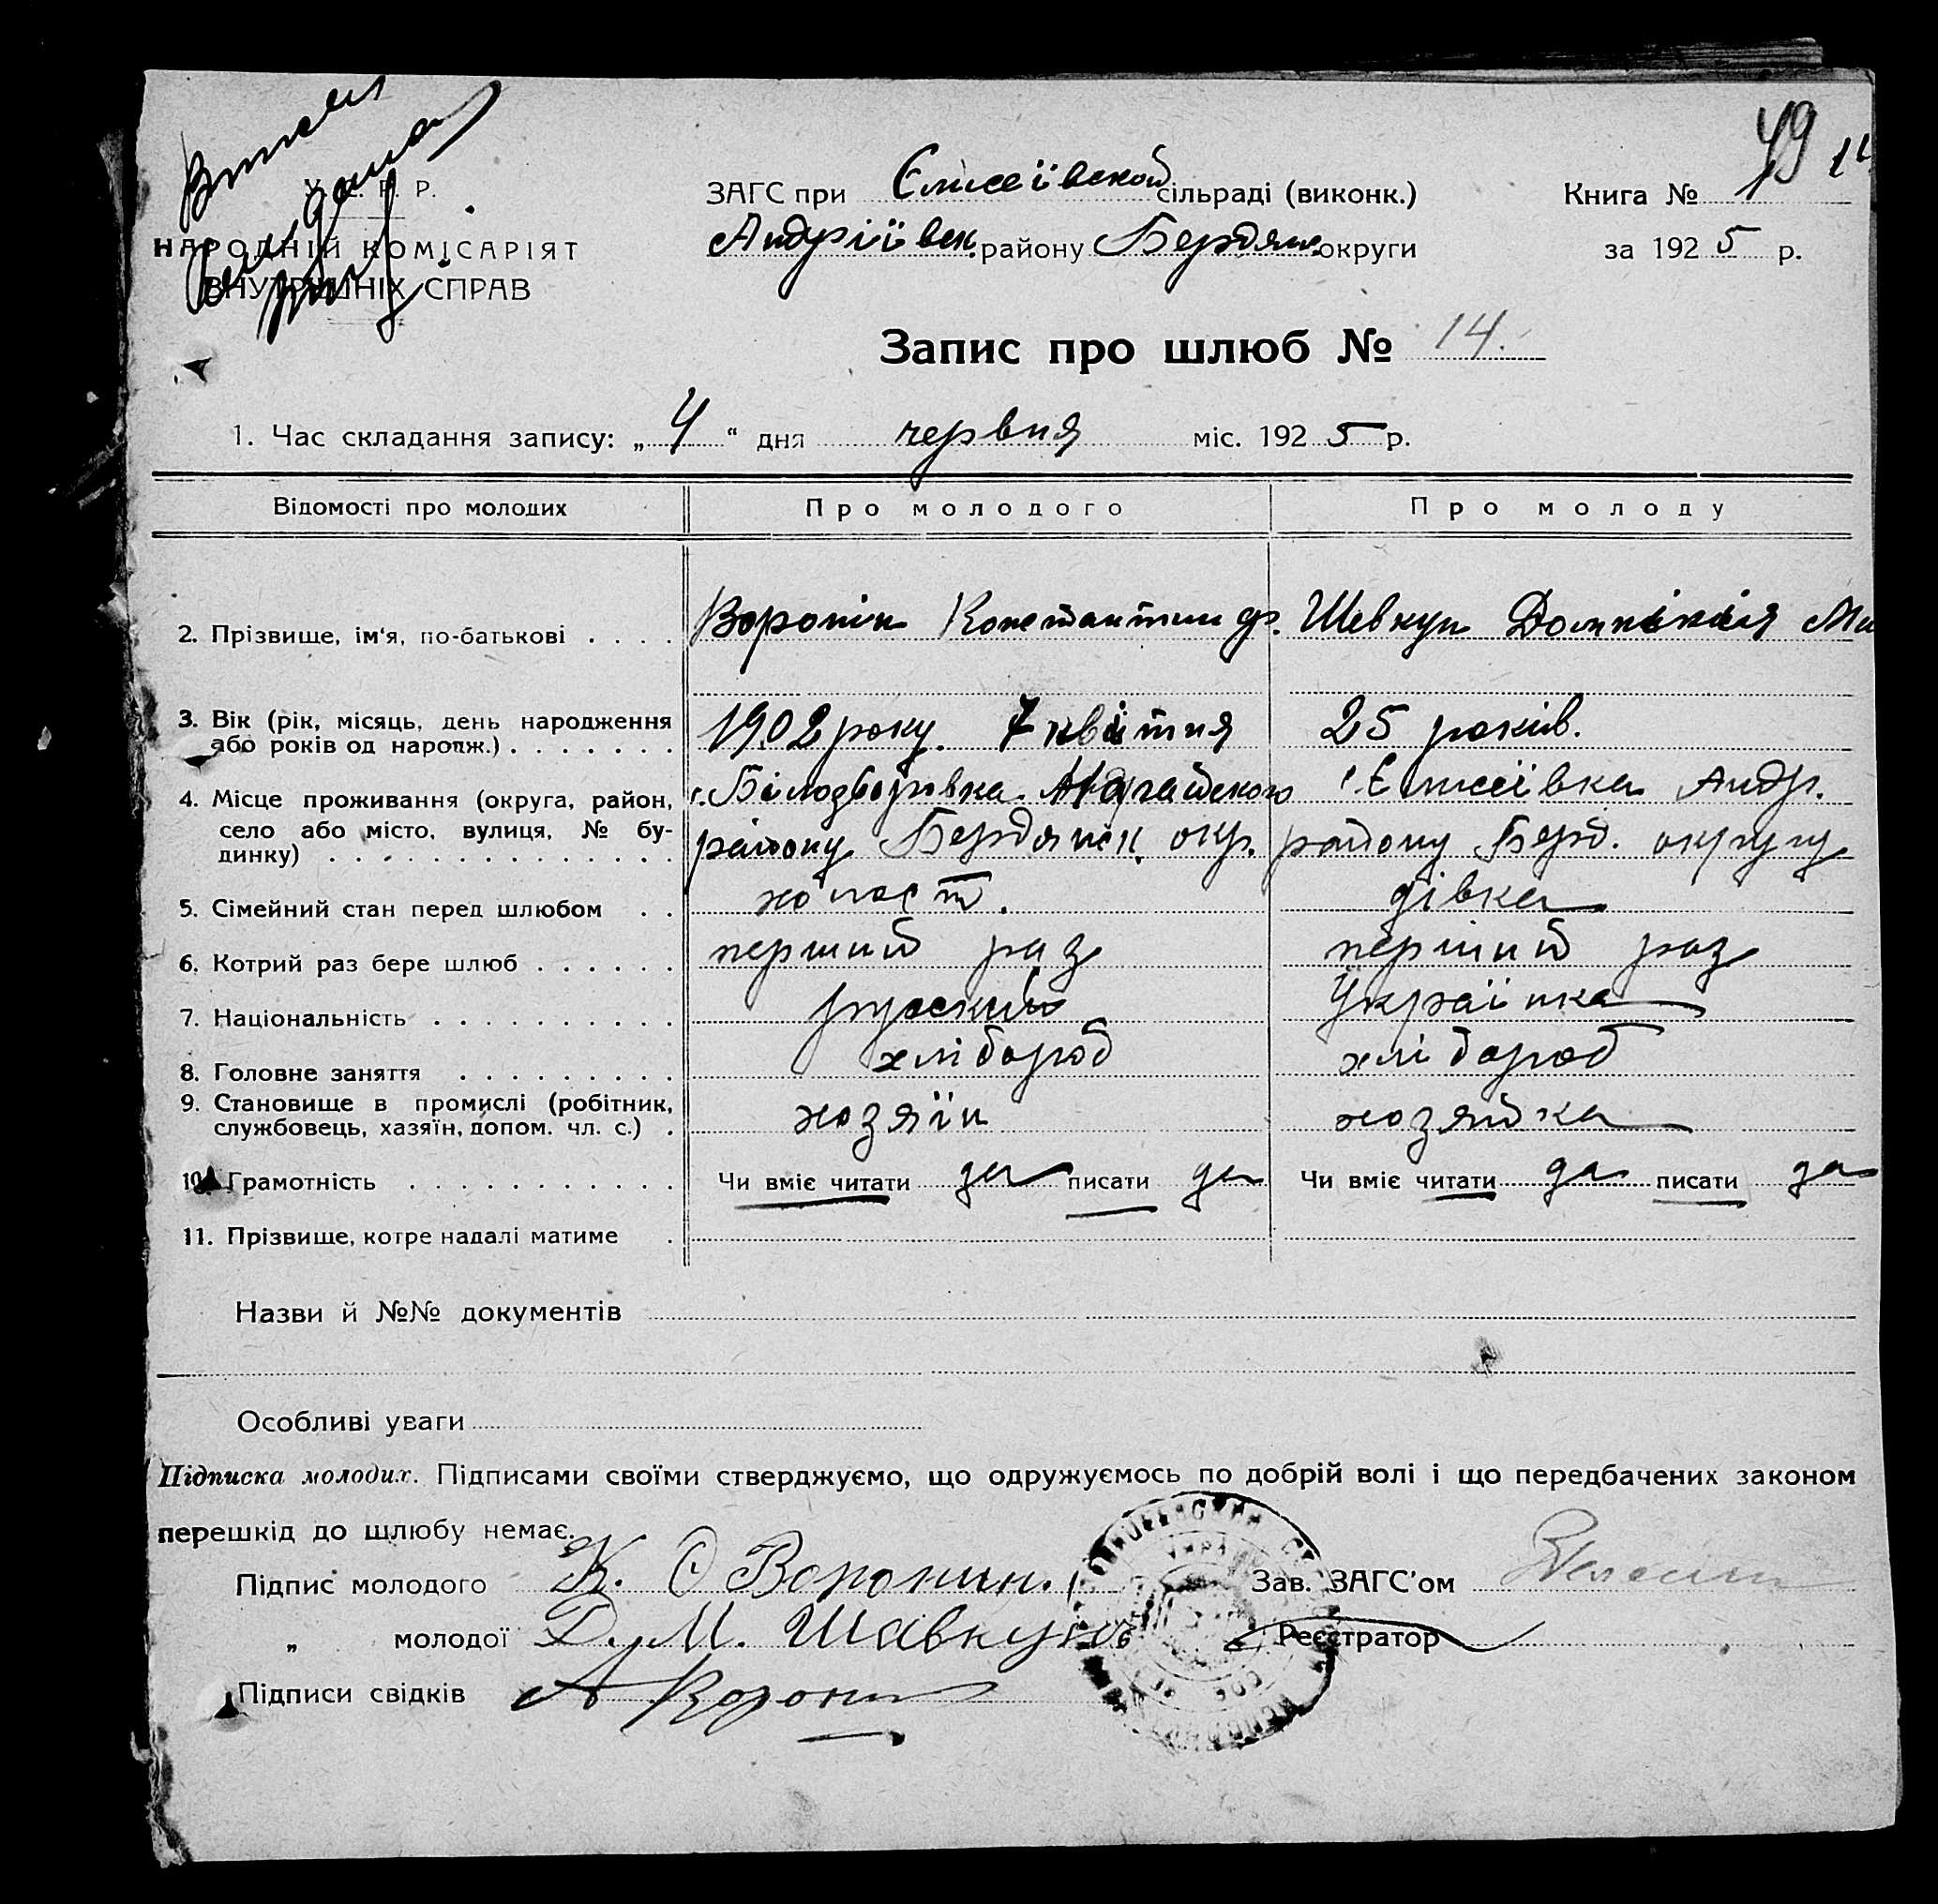 Выпись выдана
У. С. Р. Р.
НАРОДНІЙ КОМІСАРІЯТ
ВНУТРІШНІХ СПРАВ
ЗАГС при Єлисеївской сільраді (виконк.)
Андріївск. району Бердянс. округи
49
Книга №
за 1925 р.
Запис про шлюб № 14.
1. Час складання запису: „4“ дня червня міс. 1925 р.
Відомості про молодих Про молодого Про молоду
2. Прізвище, ім'я, по-батькові . . . . Воронін Константин ф. Шевкун Домнікія Ми
3. Вік (рік, місяць, день народження 1902 року. 7 квітня 25 років.
або років од народж.) . . . . . . .
4. Місце проживання (округа, район, с. Білодворовка с. Єлисеївка Андр.
село або місто, вулиця, № бу-
динку) . . . . . . . . . . . . . . . району Бердянск. окр. району Берд. округу
5. Сімейний стан перед шлюбом . . холост. дівка
6. Котрий раз бере шлюб . . . . . . перший раз перший раз
7. Національність . . . . . . . . . . руский Українка
8. Головне заняття . . . . . . . . . хлібороб хлібороб
9. Становище в промислі (робітник, хозяїн хозяйка
службовець, хазяїн, допом. чл. с.) .
10. Грамотність . . . . . . . . . . . Чи вміє читати да писати да Чи вміє читати да писати да
11. Прізвище, котре надалі матиме .
Назви й №№ документів
Особливі уваги
Підписка молодих. Підписами своїми стверджуємо, що одружуємось по добрій волі і що передбачених законом
перешкід до шлюбу немає.
Підпис молодого К. Ѳ Воронин. Зав. ЗАГС'ом
„ молодої Д. М. Шавкунова Реєстратор
Підписи свідків А Воронин